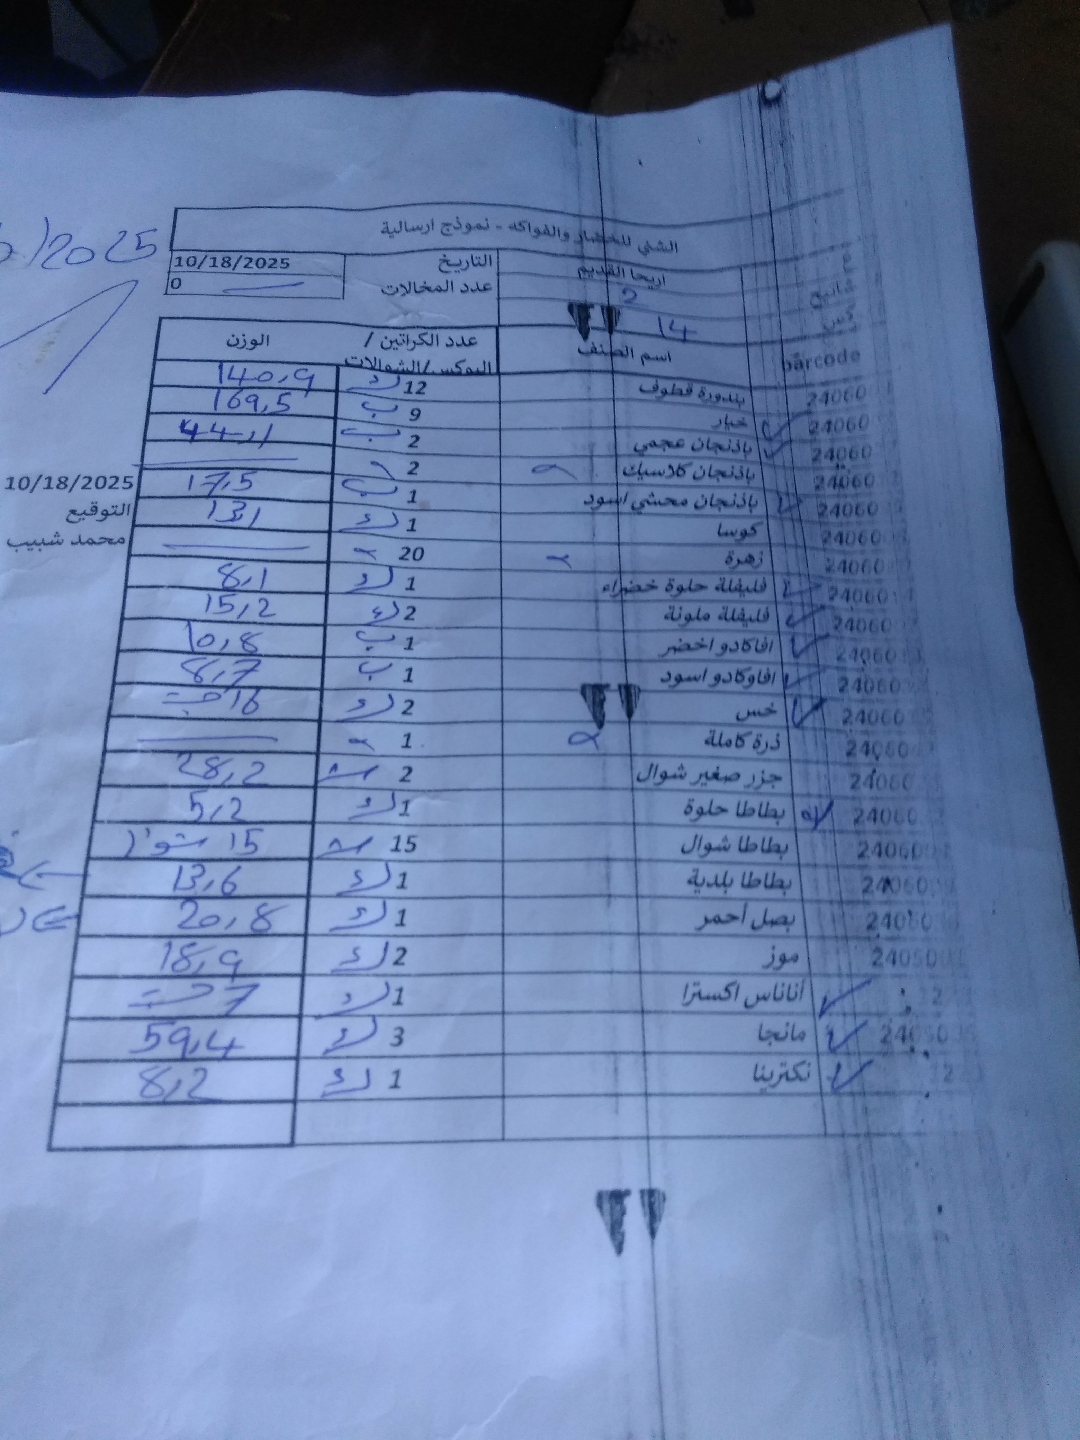 الشني للخضار والفواكه - نموذج ارسالية
اريحا القديم التاريخ 10/18/2025
2 عدد المخالات 0
14
barcode اسم الصنف عدد الكراتين / البوكس/الشوالات الوزن
24060 بندورة قطوف 12 ك 140,9
24060 خيار 9 ب 169,5
24060 باذنجان عجمي 2 ب 44,1
24060 باذنجان كلاسيك 2
24060 باذنجان محشي اسود 1 ب 17,5
24060 كوسا 1 ك 13,1
24060 زهرة 20
24060 فليفلة حلوة خضراء 1 ك 8,1
24060 فليفلة ملونة 2 ك 15,2
24060 افاكادو اخضر 1 ب 10,8
24060 افاوكادو اسود 1 ب 8,7
24060 خس 2 ك 16 حبة
24060 ذرة كاملة 1
24060 جزر صغير شوال 2 28,2
24060 بطاطا حلوة 1 ك 5,2
24060 بطاطا شوال 15 15 شوال
24060 بطاطا بلدية 1 ك 13,6
24060 بصل احمر 1 ك 20,8
24050 موز 2 ك 18,9
اناناس اكسترا 1 ك 7 حبة
24050 مانجا 3 ك 59,4
نكترينا 1 ك 8,2
/2025
10/18/2025
التوقيع
محمد شبيب